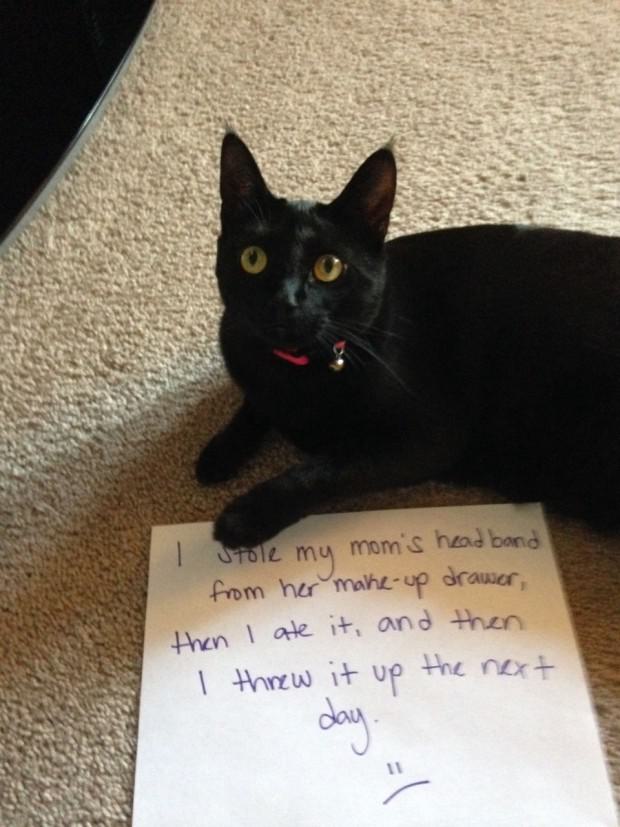 I stole my mom's headband
from her make-up drawer,
then I ate it, and then
I threw it up the next
day.